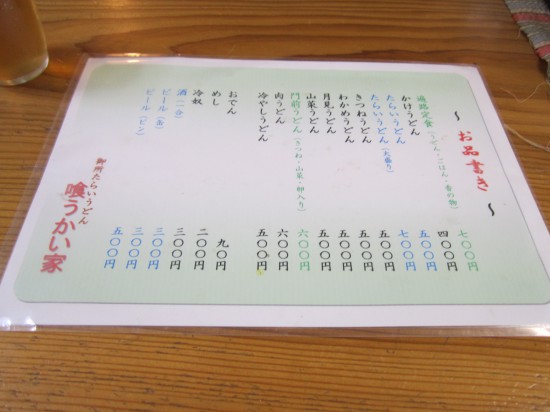 ～お品書き～
遍路定食（うどん・ごはん・香の物） 七〇〇円
かけうどん 四〇〇円
たらいうどん 五〇〇円
たらいうどん（大盛り） 七〇〇円
きつねうどん 五〇〇円
わかめうどん 五〇〇円
月見うどん 五〇〇円
山菜うどん 五〇〇円
門前うどん（きつね・山菜・卵入り） 六〇〇円
肉うどん 六〇〇円
冷やしうどん 五〇〇円
おでん 九〇円
めし 二〇〇円
冷奴 三〇〇円
酒（一合） 三〇〇円
ビール（缶） 三〇〇円
ビール（ビン） 五〇〇円
御所たらいうどん
喰うかい家